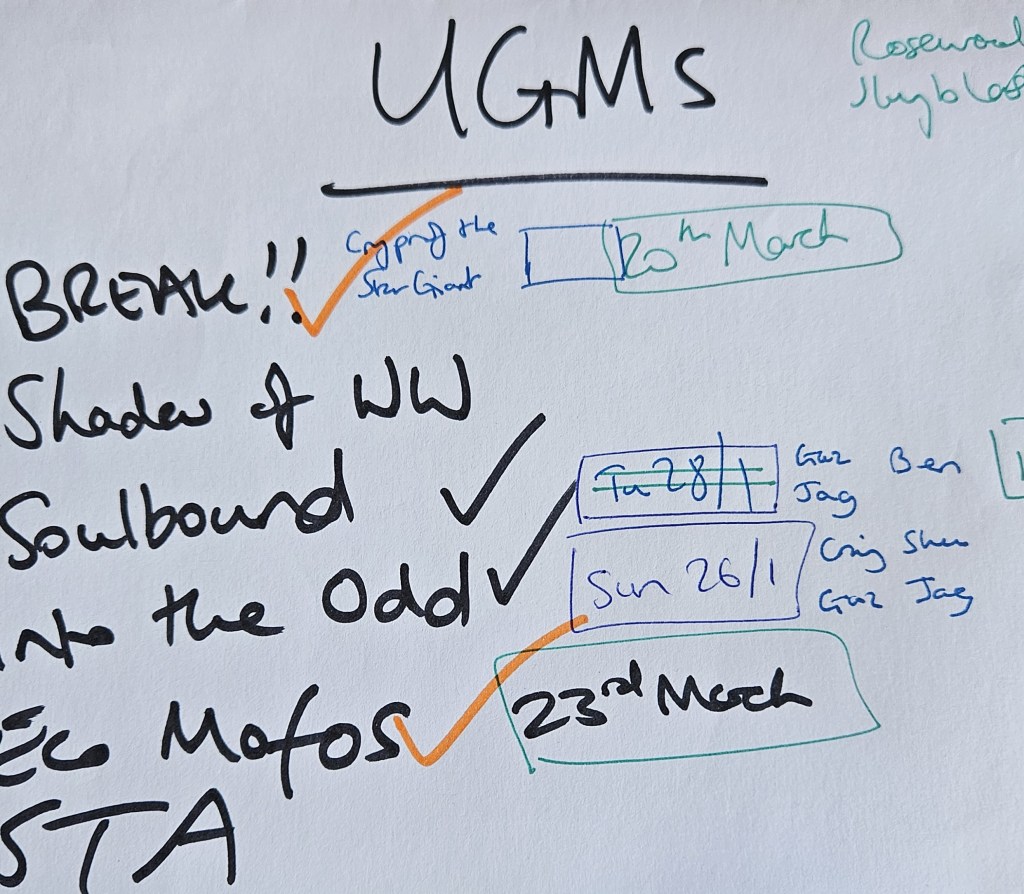 UGMs
BREAK!!
of the
Star Giant
20th March
Shadow of WW
Soulbound
Tu 28/1
Gaz Ben
Jag
into the Odd
Sun 26/1
Craig
Gaz Jag
Eco Mofos
23rd March
STA